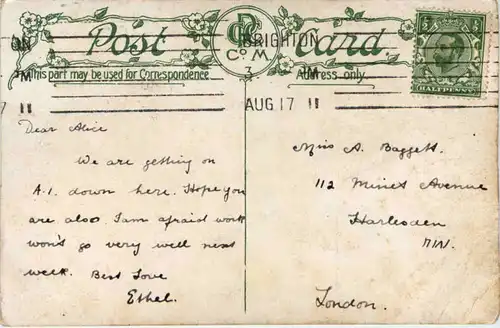 Post Card
BRIGHTON
Co M
3
AUG 17 11
This part may be used for Correspondence
Address only.
HALFPENNY
Dear Alice
We are getting on
A.1. down here. Hope you
are also. I am afraid work
won's go very well next
week. Best Love
Ethel.
Miss A. Baggett.
112 Minet Avenue
Harlesden
N.W.
London.